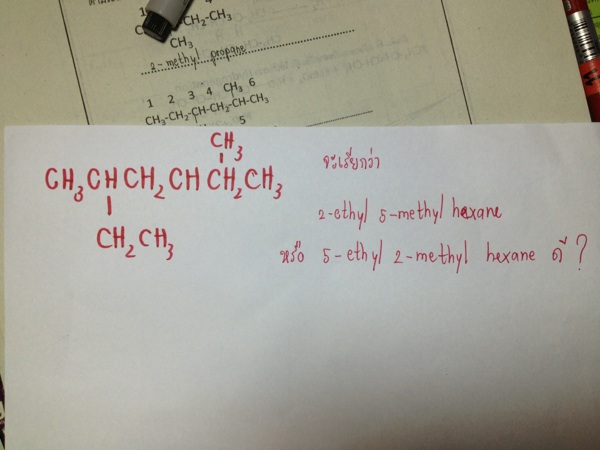 CH₂-CH₃
CH₃
2-methyl propane
1 2 3 4 CH₃ 6
CH₃-CH₂-CH-CH₂-CH-CH₃
5
CH₃
CH₃CHCH₂CHCH₂CH₃
CH₂CH₃
จะเรียกว่า
2-ethyl 5-methyl hexane
หรือ 5-ethyl 2-methyl hexane ดี ?